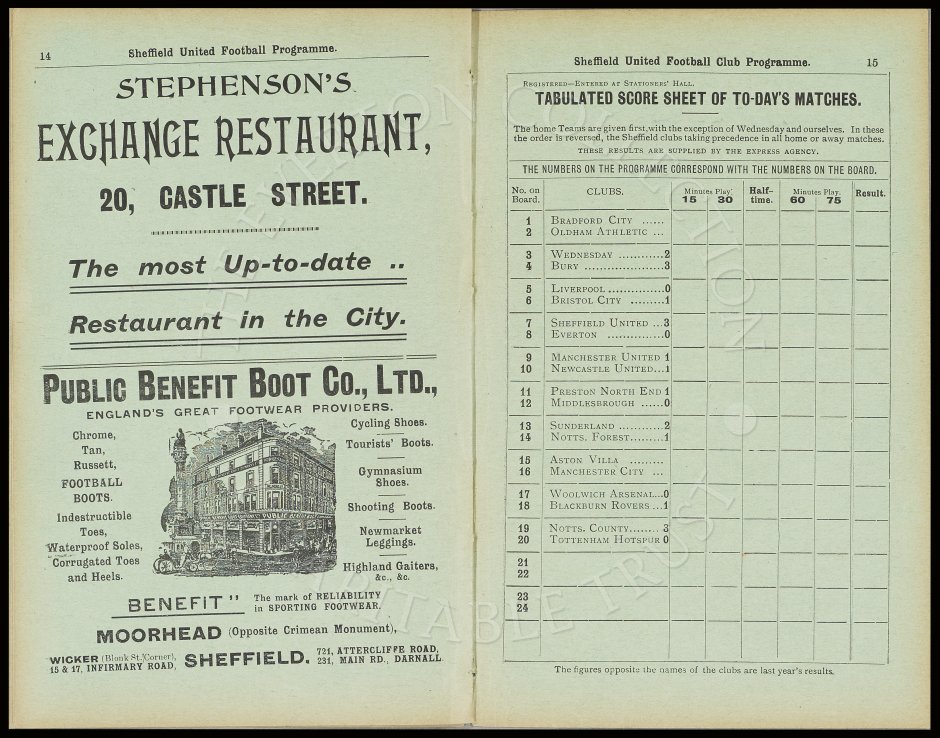 14
Sheffield United Football Programme.
STEPHENSON'S
EXCHANGE RESTAURANT,
20, CASTLE STREET.
The most Up-to-date ..
Restaurant in the City.
PUBLIC BENEFIT BOOT CO., LTD.,
ENGLAND'S GREAT FOOTWEAR PROVIDERS.
Chrome,
Tan,
Russett,
FOOTBALL
BOOTS.
Indestructible
Toes,
Waterproof Soles,
Corrugated Toes
and Heels.
PUBLIC BENEFIT
Cycling Shoes.
Tourists' Boots.
Gymnasium
Shoes.
Shooting Boots.
Newmarket
Leggings.
Highland Gaiters,
&c., &c.
BENEFIT" The mark of RELIABILITY
in SPORTING FOOTWEAR.
MOORHEAD (Opposite Crimean Monument),
WICKER (Blonk St. Corner),
15 & 17, INFIRMARY ROAD,
SHEFFIELD.
721, ATTERCLIFFE ROAD,
231, MAIN RD., DARNALL.
Sheffield United Football Club Programme. 15
REGISTERED—ENTERED AT STATIONERS' HALL.
TABULATED SCORE SHEET OF TO-DAY'S MATCHES.
The home Teams are given first, with the exception of Wednesday and ourselves. In these
the order is reversed, the Sheffield clubs taking precedence in all home or away matches.
THESE RESULTS ARE SUPPLIED BY THE EXPRESS AGENCY.
THE NUMBERS ON THE PROGRAMME CORRESPOND WITH THE NUMBERS ON THE BOARD.
No. on Board. CLUBS. Minutes Play. 15 30 Half-time. Minutes Play. 60 75 Result.
1 BRADFORD CITY ......
2 OLDHAM ATHLETIC ...
3 WEDNESDAY ............2
4 BURY .....................3
5 LIVERPOOL ...............0
6 BRISTOL CITY .........1
7 SHEFFIELD UNITED ...3
8 EVERTON ...............0
9 MANCHESTER UNITED 1
10 NEWCASTLE UNITED...1
11 PRESTON NORTH END 1
12 MIDDLESBROUGH ......0
13 SUNDERLAND ...........2
14 NOTTS. FOREST.........1
15 ASTON VILLA .........
16 MANCHESTER CITY ...
17 WOOLWICH ARSENAL...0
18 BLACKBURN ROVERS ...1
19 NOTTS. COUNTY........ 3
20 TOTTENHAM HOTSPUR 0
21
22
23
24
The figures opposite the names of the clubs are last year's results.